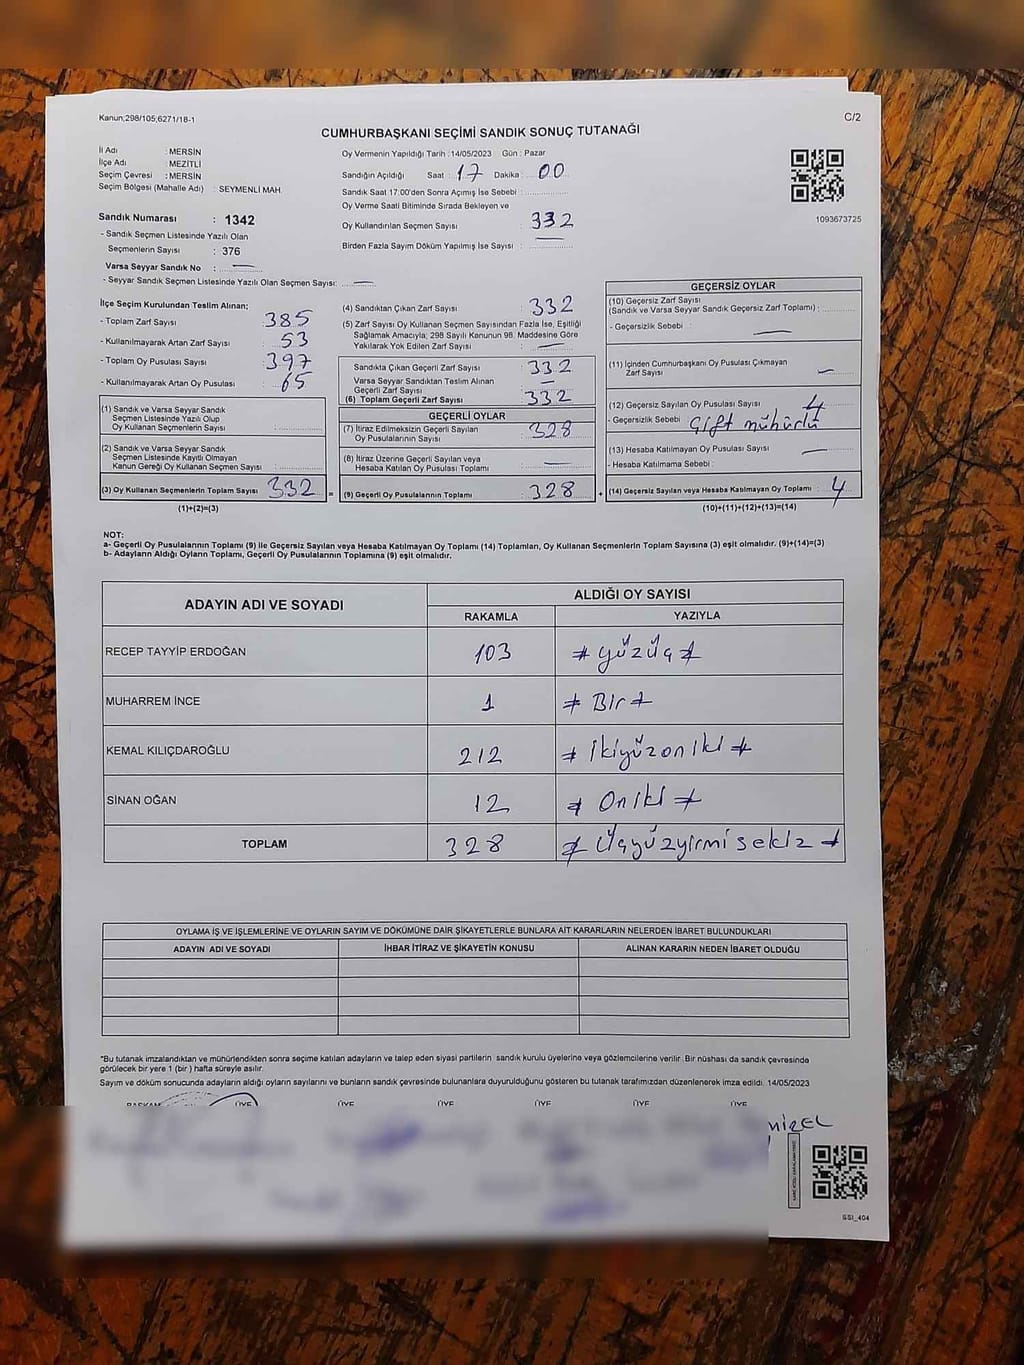 Kanun;298/105;6271/18-1
C/2
CUMHURBAŞKANI SEÇİMİ SANDIK SONUÇ TUTANAĞI
İl Adı : MERSİN
İlçe Adı : MEZİTLİ
Seçim Çevresi : MERSİN
Seçim Bölgesi (Mahalle Adı) : SEYMENLİ MAH
Sandık Numarası : 1342
- Sandık Seçmen Listesinde Yazılı Olan
Seçmenlerin Sayısı : 376
Varsa Seyyar Sandık No : —
- Seyyar Sandık Seçmen Listesinde Yazılı Olan Seçmen Sayısı: —
Oy Vermenin Yapıldığı Tarih :14/05/2023 Gün : Pazar
Sandığın Açıldığı Saat : 17 Dakika : 00
Sandık Saat 17:00'den Sonra Açımış İse Sebebi :
Oy Verme Saati Bitiminde Sırada Bekleyen ve
Oy Kullandırılan Seçmen Sayısı : 332
Birden Fazla Sayım Döküm Yapılmış İse Sayısı : —
1093673725
İlçe Seçim Kurulundan Teslim Alınan;
- Toplam Zarf Sayısı : 385
- Kullanılmayarak Artan Zarf Sayısı : 53
- Toplam Oy Pusulası Sayısı : 397
- Kullanılmayarak Artan Oy Pusulası : 65
(1) Sandık ve Varsa Seyyar Sandık
Seçmen Listesinde Yazılı Olup
Oy Kullanan Seçmenlerin Sayısı :
(2) Sandık ve Varsa Seyyar Sandık
Seçmen Listesinde Kayıtlı Olmayan
Kanun Gereği Oy Kullanan Seçmen Sayısı :
(3) Oy Kullanan Seçmenlerin Toplam Sayısı : 332
(1)+(2)=(3)
(4) Sandıktan Çıkan Zarf Sayısı : 332
(5) Zarf Sayısı Oy Kullanan Seçmen Sayısından Fazla İse, Eşitliği
Sağlamak Amacıyla; 298 Sayılı Kanunun 98. Maddesine Göre
Yakılarak Yok Edilen Zarf Sayısı : —
Sandıkta Çıkan Geçerli Zarf Sayısı : 332
Varsa Seyyar Sandıktan Teslim Alınan
Geçerli Zarf Sayısı : —
(6) Toplam Geçerli Zarf Sayısı : 332
GEÇERLİ OYLAR
(7) İtiraz Edilmeksizin Geçerli Sayılan
Oy Pusulalarının Sayısı : 328
(8) İtiraz Üzerine Geçerli Sayılan veya
Hesaba Katılan Oy Pusulası Toplamı : —
= (9) Geçerli Oy Pusulalarının Toplamı : 328
GEÇERSİZ OYLAR
(10) Geçersiz Zarf Sayısı
(Sandık ve Varsa Seyyar Sandık Geçersiz Zarf Toplamı) :
- Geçersizlik Sebebi : —
(11) İçinden Cumhurbaşkanı Oy Pusulası Çıkmayan
Zarf Sayısı : —
(12) Geçersiz Sayılan Oy Pusulası Sayısı : 4
- Geçersizlik Sebebi : Çift mühürlü
(13) Hesaba Katılmayan Oy Pusulası Sayısı : —
- Hesaba Katılmama Sebebi :
+ (14) Geçersiz Sayılan veya Hesaba Katılmayan Oy Toplamı : 4
(10)+(11)+(12)+(13)=(14)
NOT:
a- Geçerli Oy Pusulalarının Toplamı (9) ile Geçersiz Sayılan veya Hesaba Katılmayan Oy Toplamı (14) Toplamları, Oy Kullanan Seçmenlerin Toplam Sayısına (3) eşit olmalıdır. (9)+(14)=(3)
b- Adayların Aldığı Oyların Toplamı, Geçerli Oy Pusulalarının Toplamına (9) eşit olmalıdır.
ADAYIN ADI VE SOYADI
ALDIĞI OY SAYISI
RAKAMLA YAZIYLA
RECEP TAYYİP ERDOĞAN 103 # yüzüç #
MUHARREM İNCE 1 # Bir #
KEMAL KILIÇDAROĞLU 212 # ikiyüzoniki #
SİNAN OĞAN 12 # oniki #
TOPLAM 328 # Üçyüzyirmisekiz #
OYLAMA İŞ VE İŞLEMLERİNE VE OYLARIN SAYIM VE DÖKÜMÜNE DAİR ŞİKAYETLERLE BUNLARA AİT KARARLARIN NELERDEN İBARET BULUNDUKLARI
ADAYIN ADI VE SOYADI İHBAR İTİRAZ VE ŞİKAYETİN KONUSU ALINAN KARARIN NEDEN İBARET OLDUĞU
*Bu tutanak imzalandıktan ve mühürlendikten sonra seçime katılan adayların ve talep eden siyasi partilerin sandık kurulu üyelerine veya gözlemcilerine verilir. Bir nüshası da sandık çevresinde
görülecek bir yere 1 (bir ) hafta süreyle asılır.
Sayım ve döküm sonucunda adayların aldığı oyların sayılarını ve bunların sandık çevresinde bulunanlara duyurulduğunu gösteren bu tutanak tarafımızdan düzenlenerek imza edildi. 14/05/2023
BAŞKAN ÜYE ÜYE ÜYE ÜYE ÜYE ÜYE
SSI_404